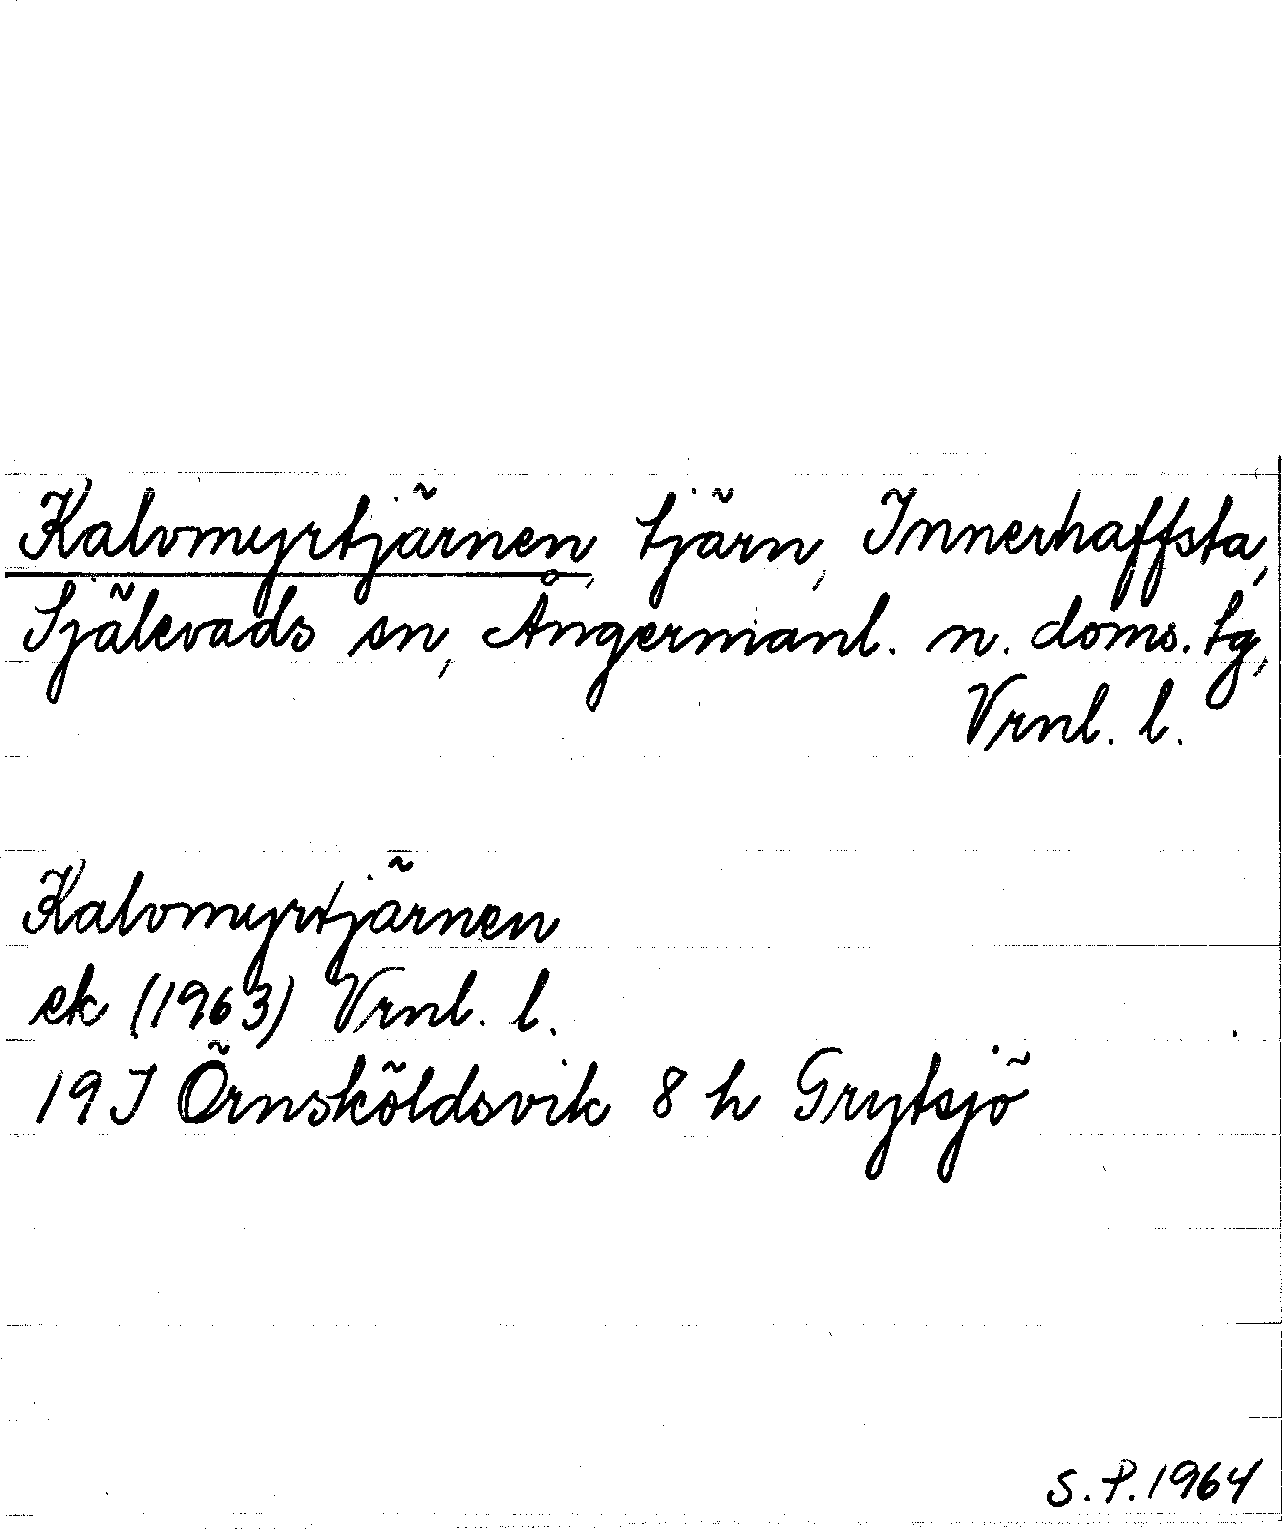 Kalvmyrtjärnen, tjärn, Innerhaffsta,
Själevads sn, Ångermanl. n. doms. tg,
Vrnl. l.
Kalvmyrtjärnen
ek (1963) Vrnl. l.
19J Örnsköldsvik 8 h Grytsjö
S.P. 1964